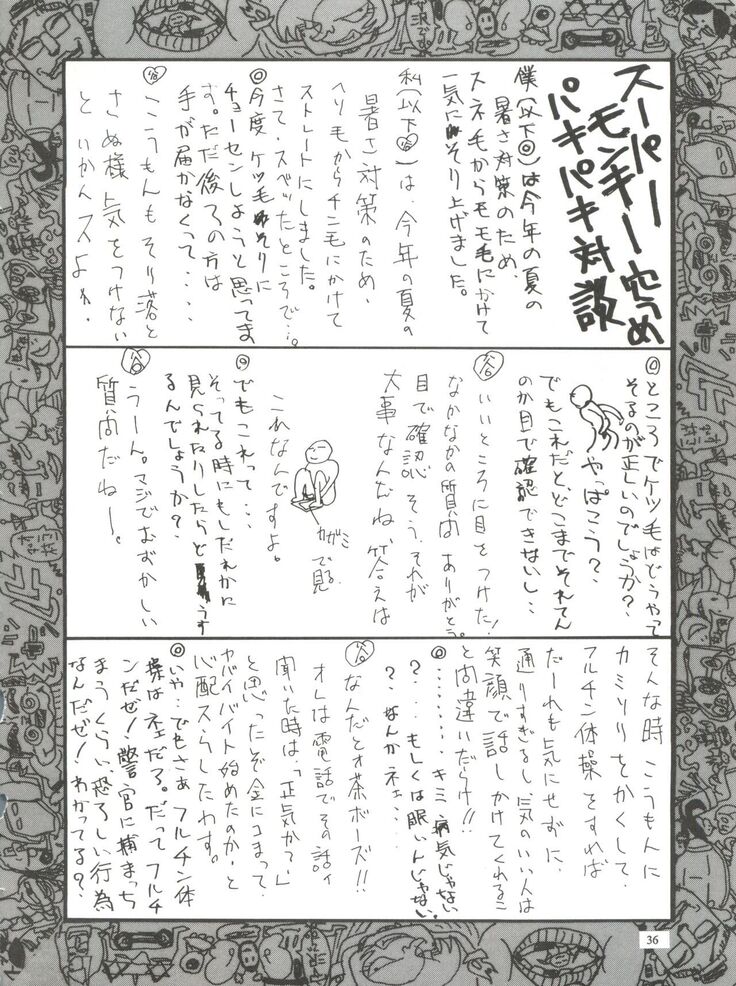 スーパー
モンキー穴うめ
パキパキ対談
僕(以下◎)は今年の夏の
暑さ対策のため、
スネ毛からモモ毛にかけて
一気にそり上げました。
私(以下谷)は、今年の夏の
暑さ対策のため、
ヘソ毛からチン毛にかけて
ストレートにしました。
さて、スベッたところで…。
◎今度ケツ毛そりに
チョーセンしようと思ってま
す。ただ後ろの方は
手が届かなくって・・・・
谷 こうもんもそり落と
さぬ様気をつけない
といかんスよ。
◎ところでケツ毛はどうやって
そるのが正しいのでしょうか?
やっぱこう?
でもこれだと、どこまでそれてん
のか目で確認できないし・・
谷 いいところに目をつけた!
なかなかの質問ありがとう。
目で確認、そう、それが
大事なんだね、答えは
これなんですよ。
カガミ
で見る
◎でもこれって・・・
そってる時にもしだれかに
見られたりしたらどうす
るんでしょうか?
谷 うーん。マジでむずかしい
質問だねー。
そんな時こうもんに
カミソリをかくして、
フルチン体操をすれば
だーれも気にせずに、
通りすぎるし気のいい人は
笑顔で話しかけてくれるこ
と間違いだらけ!!
◎・・・・・・キミ、病気じゃない
?・・・もしくは眠いんじゃない
?、なんかネェ・・・
谷 なんだとォ茶ボーズ!!
オレは電話でその話ィ
聞いた時は、「正気かっ」
と思ったぞ金にコまって、
ヤバイバイト始めたのか、と
心配スらしたわす。
◎いや・・でもさぁ フルチン体
操はネェだろ。だって フルチ
ンだぜ!警官に捕まっち
まうくらい恐ろしい行為
なんだぜ!わかってる?
36